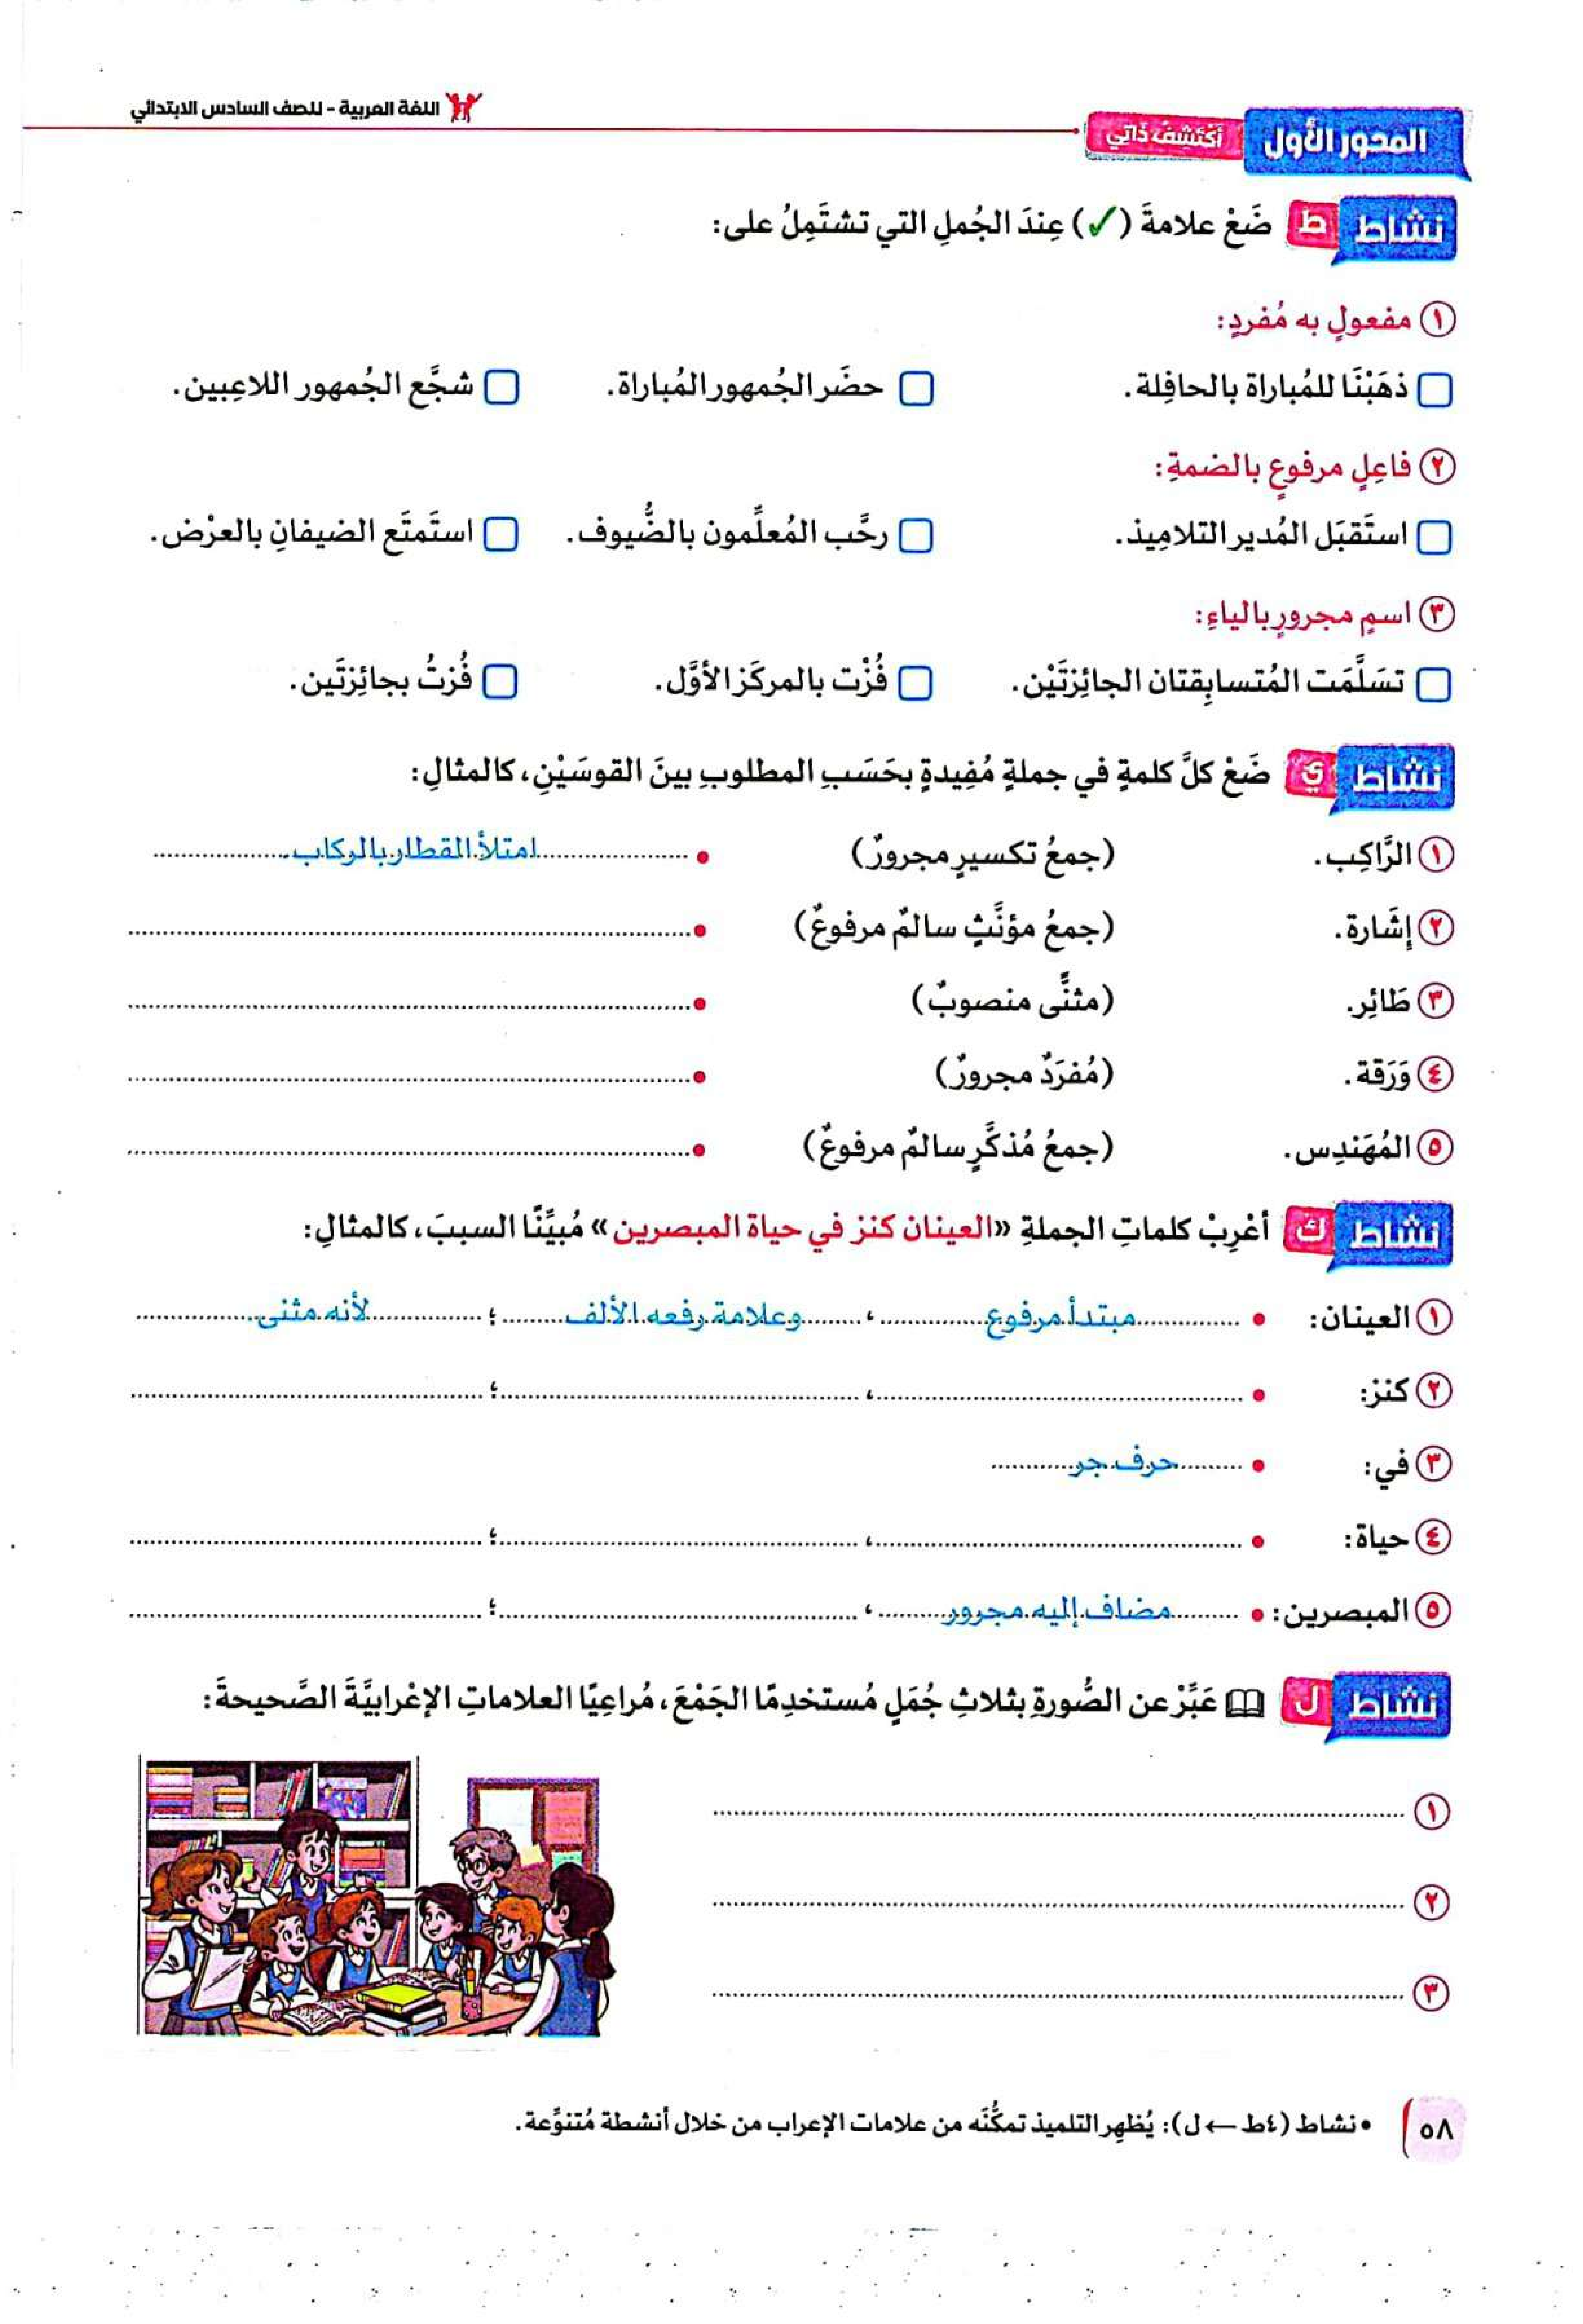 اللغة العربية - للصف السادس الابتدائي
المحور الأول أكتشف ذاتي
نشاط ط ضَعْ علامةَ (✓) عِندَ الجُملِ التي تشتَمِلُ على:
١ مفعولٍ به مُفردٍ:
ذهَبْنَا للمُباراة بالحافِلة. حضَر الجُمهور المُباراة. شجَّع الجُمهور اللاعِبين.
٢ فاعِلٍ مرفوعٍ بالضمةِ:
استَقبَل المُدير التلاميذ. رحَّب المُعلِّمون بالضُّيوف. استَمتَع الضيفانِ بالعرْض.
٣ اسمٍ مجرورٍ بالياءِ:
تسَلَّمَت المُتسابِقتان الجائِزتَيْن. فُزْت بالمركَز الأوَّل. فُزتُ بجائِزتَين.
نشاط ي ضَعْ كلَّ كلمةٍ في جملةٍ مُفِيدةٍ بحَسَبِ المطلوبِ بينَ القوسَيْنِ، كالمثالِ:
١ الرَّاكِب. (جمعُ تكسيرٍ مجرورٌ) • امتلأ القطار بالركاب.
٢ إشَارة. (جمعُ مؤنَّثٍ سالمٌ مرفوعٌ) •
٣ طَائِر. (مثنًّى منصوبٌ) •
٤ وَرَقة. (مُفرَدٌ مجرورٌ) •
٥ المُهَندِس. (جمعُ مُذكَّرٍ سالمٌ مرفوعٌ) •
نشاط ك أعْرِبْ كلماتِ الجملةِ «العينان كنز في حياة المبصرين» مُبيِّنًا السببَ، كالمثالِ:
١ العينان: • مبتدأ مرفوع ، وعلامة رفعه الألف ؛ لأنه مثنى
٢ كنز: • ، ؛
٣ في: • حرف جر
٤ حياة: • ، ؛
٥ المبصرين: • مضاف إليه مجرور ، ؛
نشاط ل عَبِّرْ عن الصُّورةِ بثلاثِ جُمَلٍ مُستخدِمًا الجَمْعَ، مُراعِيًا العلاماتِ الإعْرابيَّةَ الصَّحيحةَ:
١
٢
٣
٥٨ • نشاط (٤ط ← ل): يُظهِر التلميذ تمكُّنَه من علامات الإعراب من خلال أنشطة مُتنوِّعة.